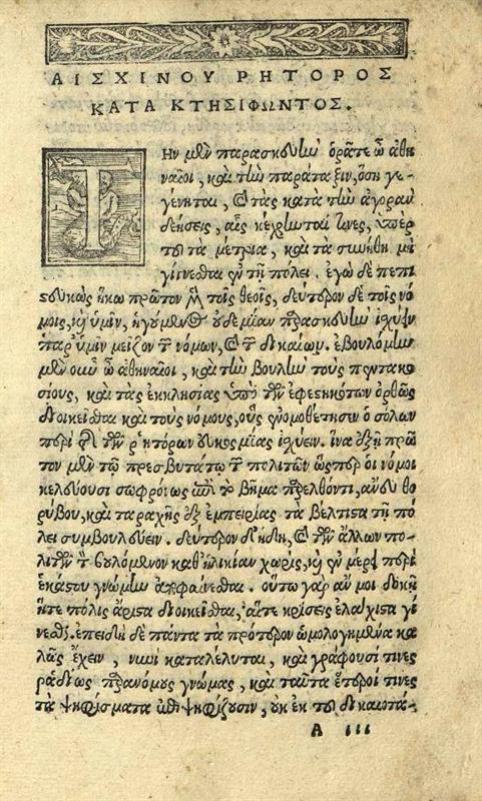 ΑΙΣΧΙΝΟΥ ΡΗΤΟΡΟΣ
ΚΑΤΑ ΚΤΗΣΙΦΩΝΤΟΣ.
Τ
Ην μὲν παρασκευὴν ὁρᾶτε ὦ ἀθη
ναῖοι, καὶ τὴν παράταξιν, ὅση γε-
γένηται, καὶ τὰς κατὰ τὴν ἀγορὰν
δεήσεις, αἷς κέχρηνταί τινες, ὑπὲρ
τοῦ τὰ μέτρια, καὶ τὰ συνήθη μὴ
γίγνεσθαι ἐν τῇ πόλει. ἐγὼ δὲ πεπι
στευκὼς ἥκω πρῶτον μὲν τοῖς θεοῖς, δεύτερον δὲ τοῖς νό
μοις, καὶ ὑμῖν, ἡγούμενος οὐδεμίαν παρασκευὴν ἰσχύειν
παρ' ὑμῖν μεῖζον τῶν νόμων, καὶ τῶν δικαίων. ἐβουλόμην
μὲν οὖν ὦ ἀθηναῖοι, καὶ τὴν βουλὴν τοὺς πεντακο
σίους, καὶ τὰς ἐκκλησίας ὑπὸ τῶν ἐφεστηκότων ὀρθῶς
διοικεῖσθαι καὶ τοὺς νόμους, οὓς ἐνομοθέτησεν ὁ σόλων
περὶ τῆς τῶν ῥητόρων εὐκοσμίας ἰσχύειν. ἵνα ἐξῇ πρῶ
τον μὲν τῷ πρεσβυτάτῳ τῶν πολιτῶν ὥσπερ οἱ νόμοι
κελεύουσι σωφρόνως ἐπὶ τὸ βῆμα παρελθόντι, ἄνευ θο
ρύβου, καὶ ταραχῆς ἐξ ἐμπειρίας τὰ βέλτιστα τῇ πό
λει συμβουλεύειν. δεύτερον δ' ἤδη, καὶ τῶν ἄλλων πο-
λιτῶν τὸν βουλόμενον καθ' ἡλικίαν χωρὶς, καὶ ἐν μέρει περὶ
ἑκάστου γνώμην ἀποφαίνεσθαι. οὕτω γὰρ ἄν μοι δοκεῖ
ἥτε πόλις ἄριστα διοικεῖσθαι, αἵτε κρίσεις ἐλάχισται γί
νεσθαι. ἐπειδὴ δὲ πάντα τὰ πρότερον ὡμολογημένα κα
λῶς ἔχειν, νυνὶ καταλέλυται, καὶ γράφουσί τινες
ῥᾳδίως παρανόμους γνώμας, καὶ ταῦτα ἕτεροί τινες
τὰ ψηφίσματα ἐπιψηφίζουσιν, οὐκ ἐκ τοῦ δικαιοτά-
A iii